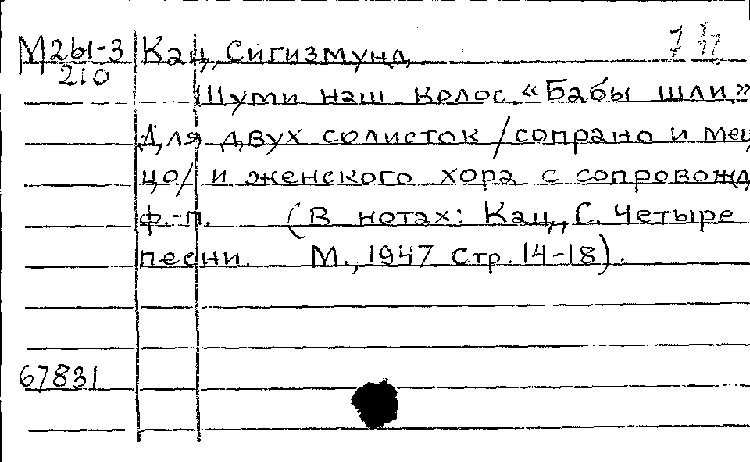 М261-3 Кац, Сигизмунд
210
Шуми наш колос. «Бабы шли»
Для двух солисток /сопрано и мец
цо/ и женского хора с сопровожд
ф.-п. (В нотах: Кац, С. Четыре
песни. М., 1947 Стр. 14-18).
67831